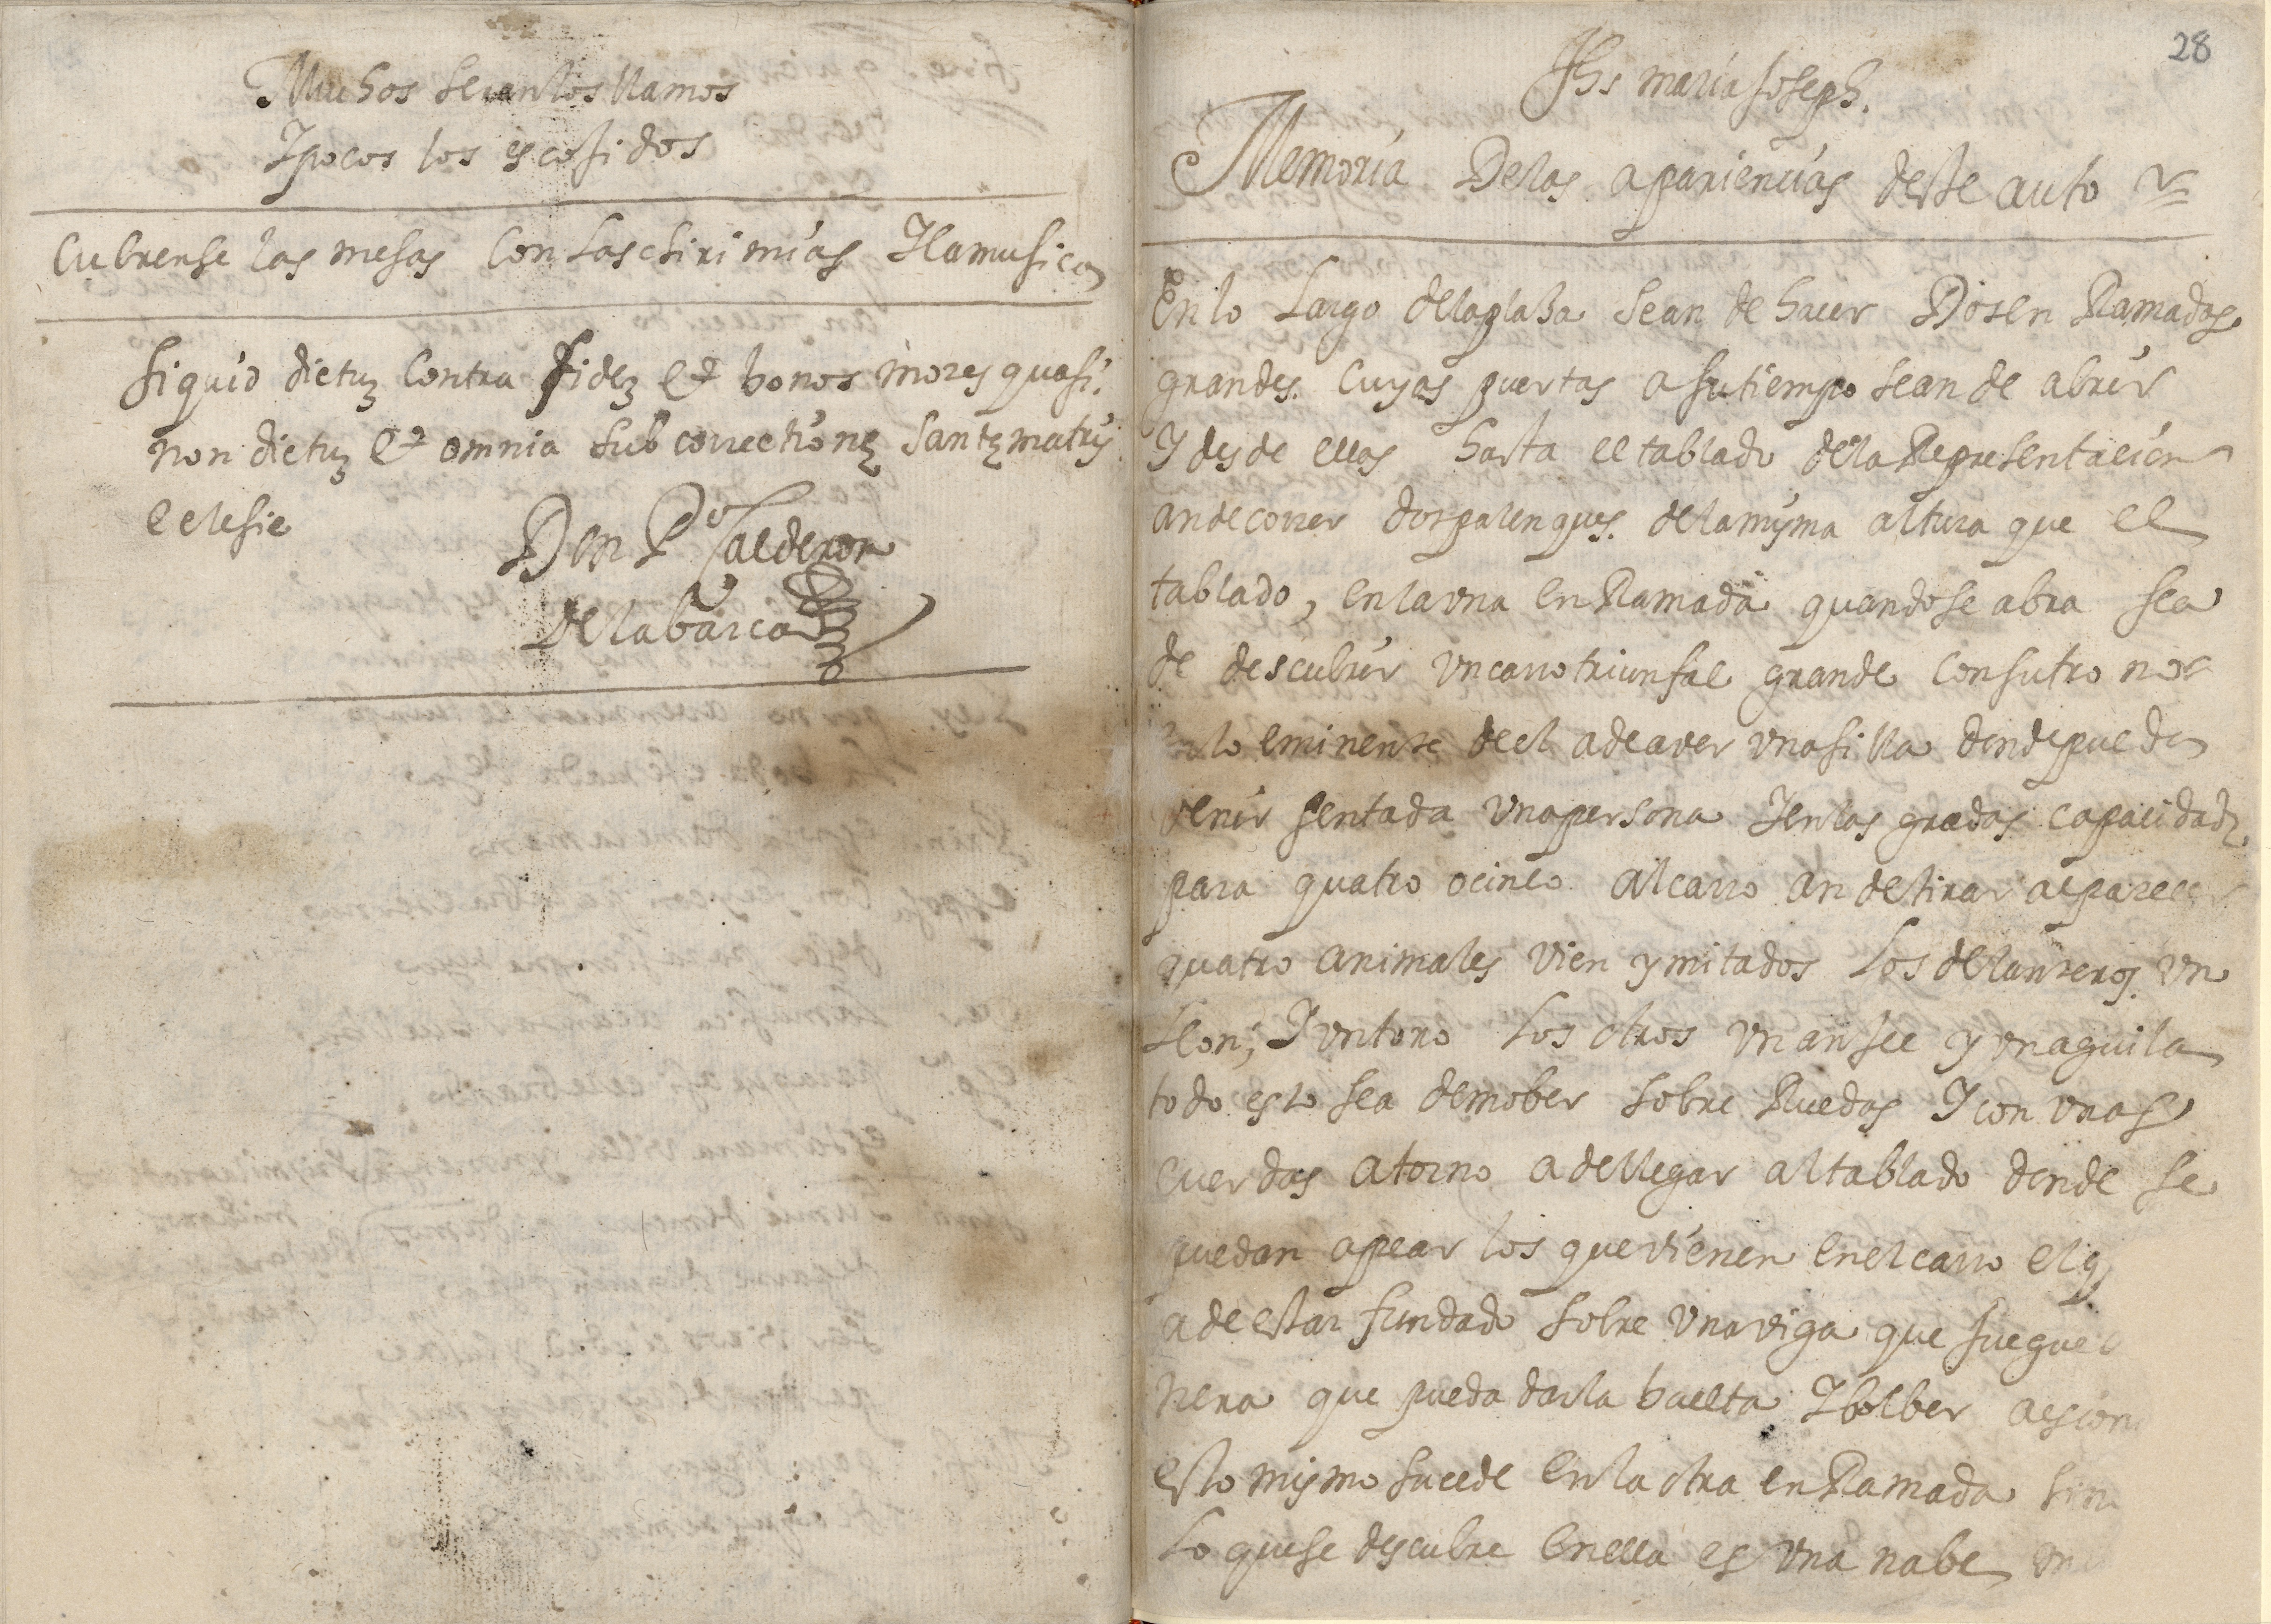 Muchos seran los llamos
I pocos los escojidos
Cubrense las mesas con las chirimias I la musica
si quid dictuz contra fidez et bonos mores quasi
non dictuz et omnia sub correctionę santę matris
eclesie
Don Pº Calderon
de la barca
28
Jhs maria Joseph.
Memoria de las apariencias deste auto
En lo largo de la plaza sean de hacer dos en Ramadas
grandes. cuyas puertas a su tiempo sean de abrir
I desde ellas hasta el tablado de la Representacion
an de correr dos palenques. de la misma altura que el
tablado, en la una en Ramada quando se abra sea
de descubrir un carro triunfal grande con su trono
lo eminente de el a de aver una silla donde pueda
venir sentada una persona I en las gradas capacidad
para quatro o cinco al carro an de tirar al parecer
quatro animales vien ymitados los delanteros un
Leon, I un toro los otros un anjel y un aguila
todo esto sea de mober sobre Ruedas I con unas
cuerdas a torno a de llegar al tablado donde se
puedan apear los que vienen en el carro el q
a de estar fundado sobre una viga que juegue
nera que pueda dar la buelta I bolber a escon
esto mismo sucede en la otra en Ramada sin
Lo que se descubre en ella es una nabe un